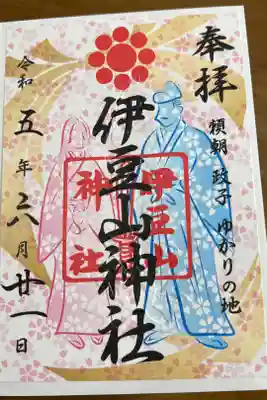 奉拝
頼朝 政子 ゆかりの地
伊豆山神社
伊豆山
神社
令和五年六月廿一日